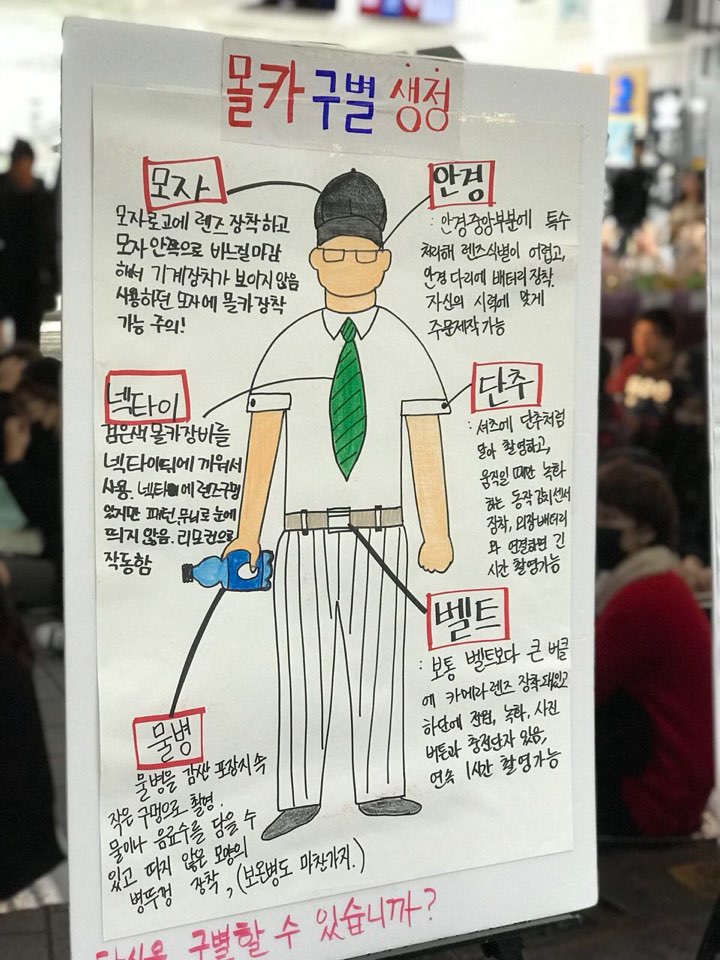 몰카 구별 생정
모자
모자로고에 렌즈 장착하고
모자 안쪽으로 바느질 마감
해서 기계장치가 보이지 않음
사용하던 모자에 몰카 장착
가능 주의!
안경
: 안경 중앙부분에 특수
처리해 렌즈식별이 어렵고,
안경 다리에 배터리 장착.
자신의 시력에 맞게
주문제작 가능
넥타이
검은색 몰카장비를
넥타이띠에 끼워서
사용. 넥타이에 렌즈구멍
있지만 패턴 무늬로 눈에
띄지 않음. 리모컨으로
작동함
단추
: 셔츠에 단추처럼
달아 촬영하고,
움직일 때만 녹화
하는 동작 감지센서
장착, 외장배터리
와 연결하면 긴
시간 촬영가능
벨트
: 보통 벨트보다 큰 버클
에 카메라 렌즈 장착돼있고
하단에 전원, 녹화, 사진
버튼과 충전단자 있음,
연속 1시간 촬영가능
물병
물병을 감싼 포장지 속
작은 구멍으로 촬영.
물이나 음료수를 담을 수
있고 따지 않은 모양의
병뚜껑 장착, (보온병도 마찬가지.)
구별할 수 있습니까?